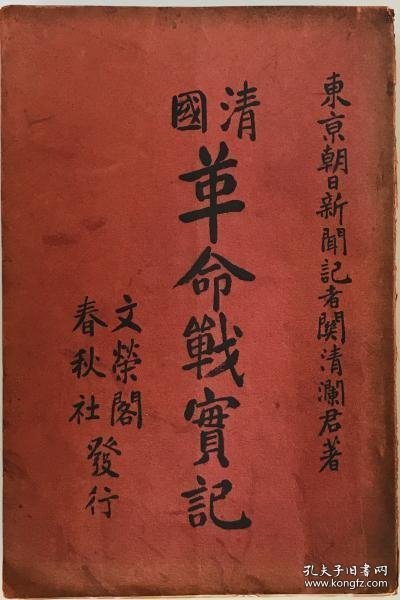 東京朝日新聞記者関清瀾君著
清國
革命戰實記
文榮閣
春秋社
發行
孔夫子旧书网
book.kongfz.com